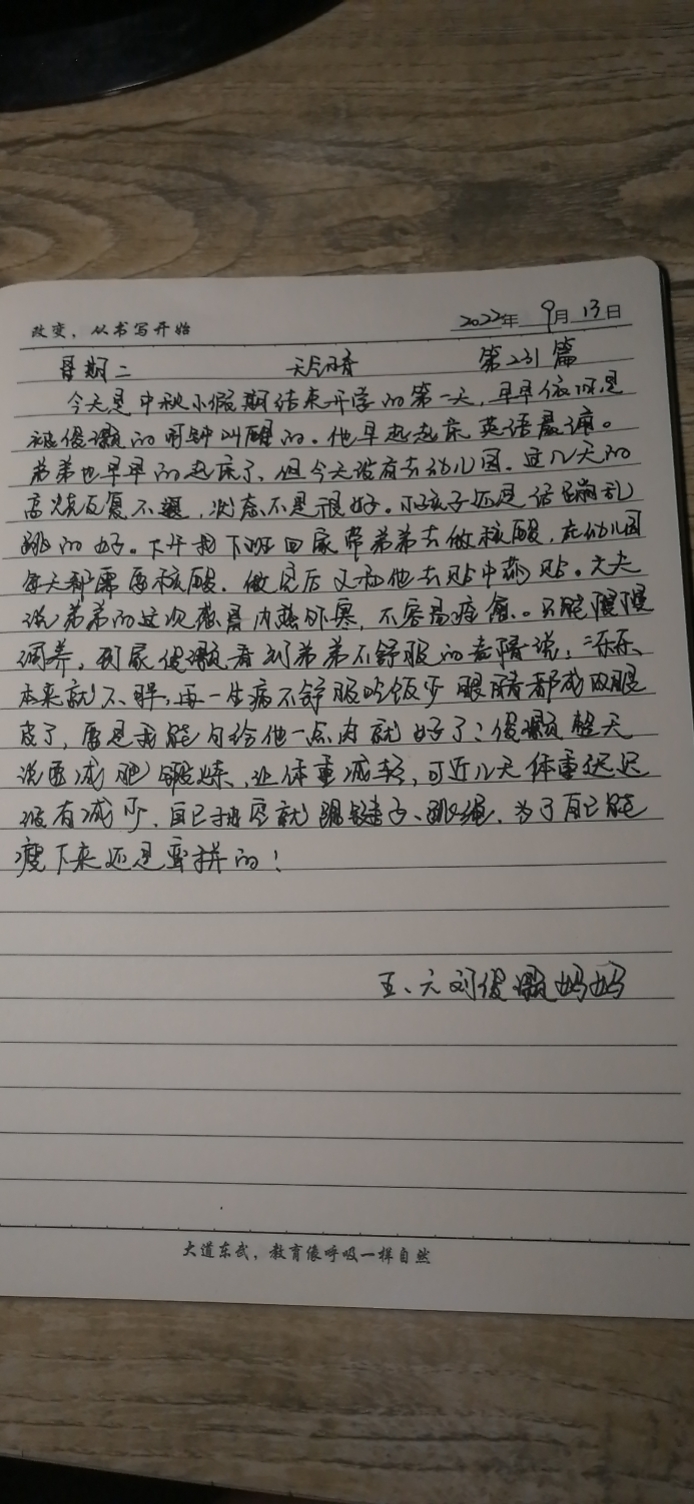 改变，从书写开始
2022年 9月 13日
星期二 天气晴 第231篇
今天是中秋小假期结束开学的第一天，早早依旧是
被俊灏的闹钟叫醒的。他早起起床英语晨诵。
弟弟也早早的起床了，但今天没有去幼儿园。这几天的
高烧反复不退，状态不是很好。小孩子还是活蹦乱
跳的好。下午我下班回家带弟弟去做核酸，在幼儿园
每天都需要核酸。做完后又和他去贴中药贴。大夫
说弟弟的这次感冒内热外寒，不容易痊愈。只能慢慢
调养，到家俊灏看到弟弟不舒服的表情说：“乐乐、
本来就不胖，再一生病不舒服吃饭少 眼睛都成双眼
皮了，要是我能匀给他一点肉就好了；俊灏整天
说要减肥 锻炼、让体重减轻，可近几天体重迟迟
没有减少，自己抽空就踢毽子、跳绳，为了自己能
瘦下来还是蛮拼的！
五、六 刘俊灏妈妈
大道东武，教育像呼吸一样自然